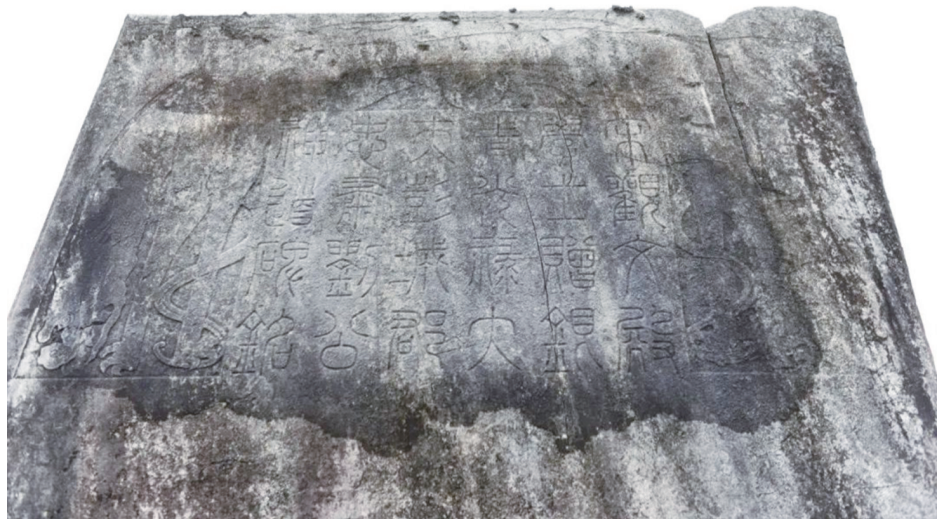 宋觀文殿
學士贈銀
青光祿大
夫彭城郡
忠肅劉公
神道碑銘